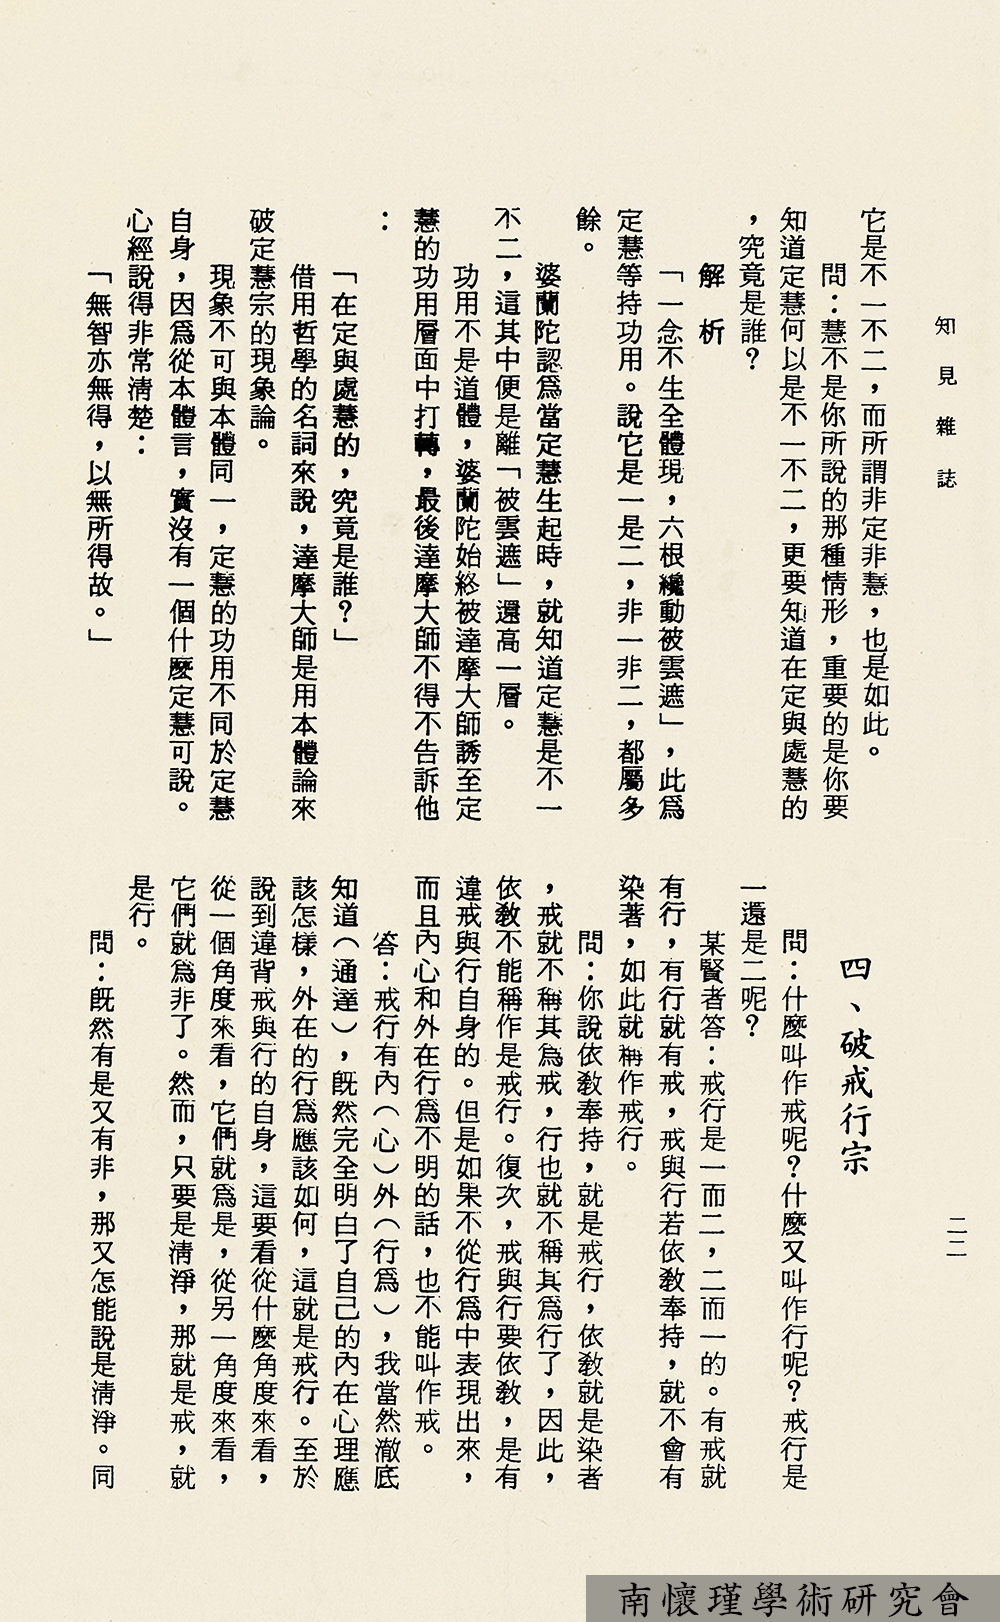 知見雜誌
二二
它是不一不二，而所謂非定非慧，也是如此。
問：慧不是你所說的那種情形，重要的是你要
知道定慧何以是不一不二，更要知道在定與處慧的
，究竟是誰？
解析
「一念不生全體現，六根纔動被雲遮」，此爲
定慧等持功用。說它是一是二，非一非二，都屬多
餘。
婆蘭陀認爲當定慧生起時，就知道定慧是不一
不二，這其中便是離「被雲遮」還高一層。
功用不是道體，婆蘭陀始終被達摩大師誘至定
慧的功用層面中打轉，最後達摩大師不得不告訴他
：
「在定與處慧的，究竟是誰？」
借用哲學的名詞來說，達摩大師是用本體論來
破定慧宗的現象論。
現象不可與本體同一，定慧的功用不同於定慧
自身，因爲從本體言，實沒有一個什麼定慧可說。
心經說得非常清楚：
「無智亦無得，以無所得故。」
四、破戒行宗
問：什麼叫作戒呢？什麼又叫作行呢？戒行是
一還是二呢？
某賢者答：戒行是一而二，二而一的。有戒就
有行，有行就有戒，戒與行若依教奉持，就不會有
染著，如此就稱作戒行。
問：你說依教奉持，就是戒行，依教就是染者
，戒就不稱其爲戒，行也就不稱其爲行了，因此，
依教不能稱作是戒行。復次，戒與行要依教，是有
違戒與行自身的。但是如果不從行爲中表現出來，
而且內心和外在行爲不明的話，也不能叫作戒。
答：戒行有內（心）外（行爲），我當然澈底
知道（通達），既然完全明白了自己的內在心理應
該怎樣，外在的行爲應該如何，這就是戒行。至於
說到違背戒與行的自身，這要看從什麼角度來看，
從一個角度來看，它們就爲是，從另一角度來看，
它們就爲非了。然而，只要是清淨，那就是戒，就
是行。
問：既然有是又有非，那又怎能說是清淨。同
南懷瑾學術研究會